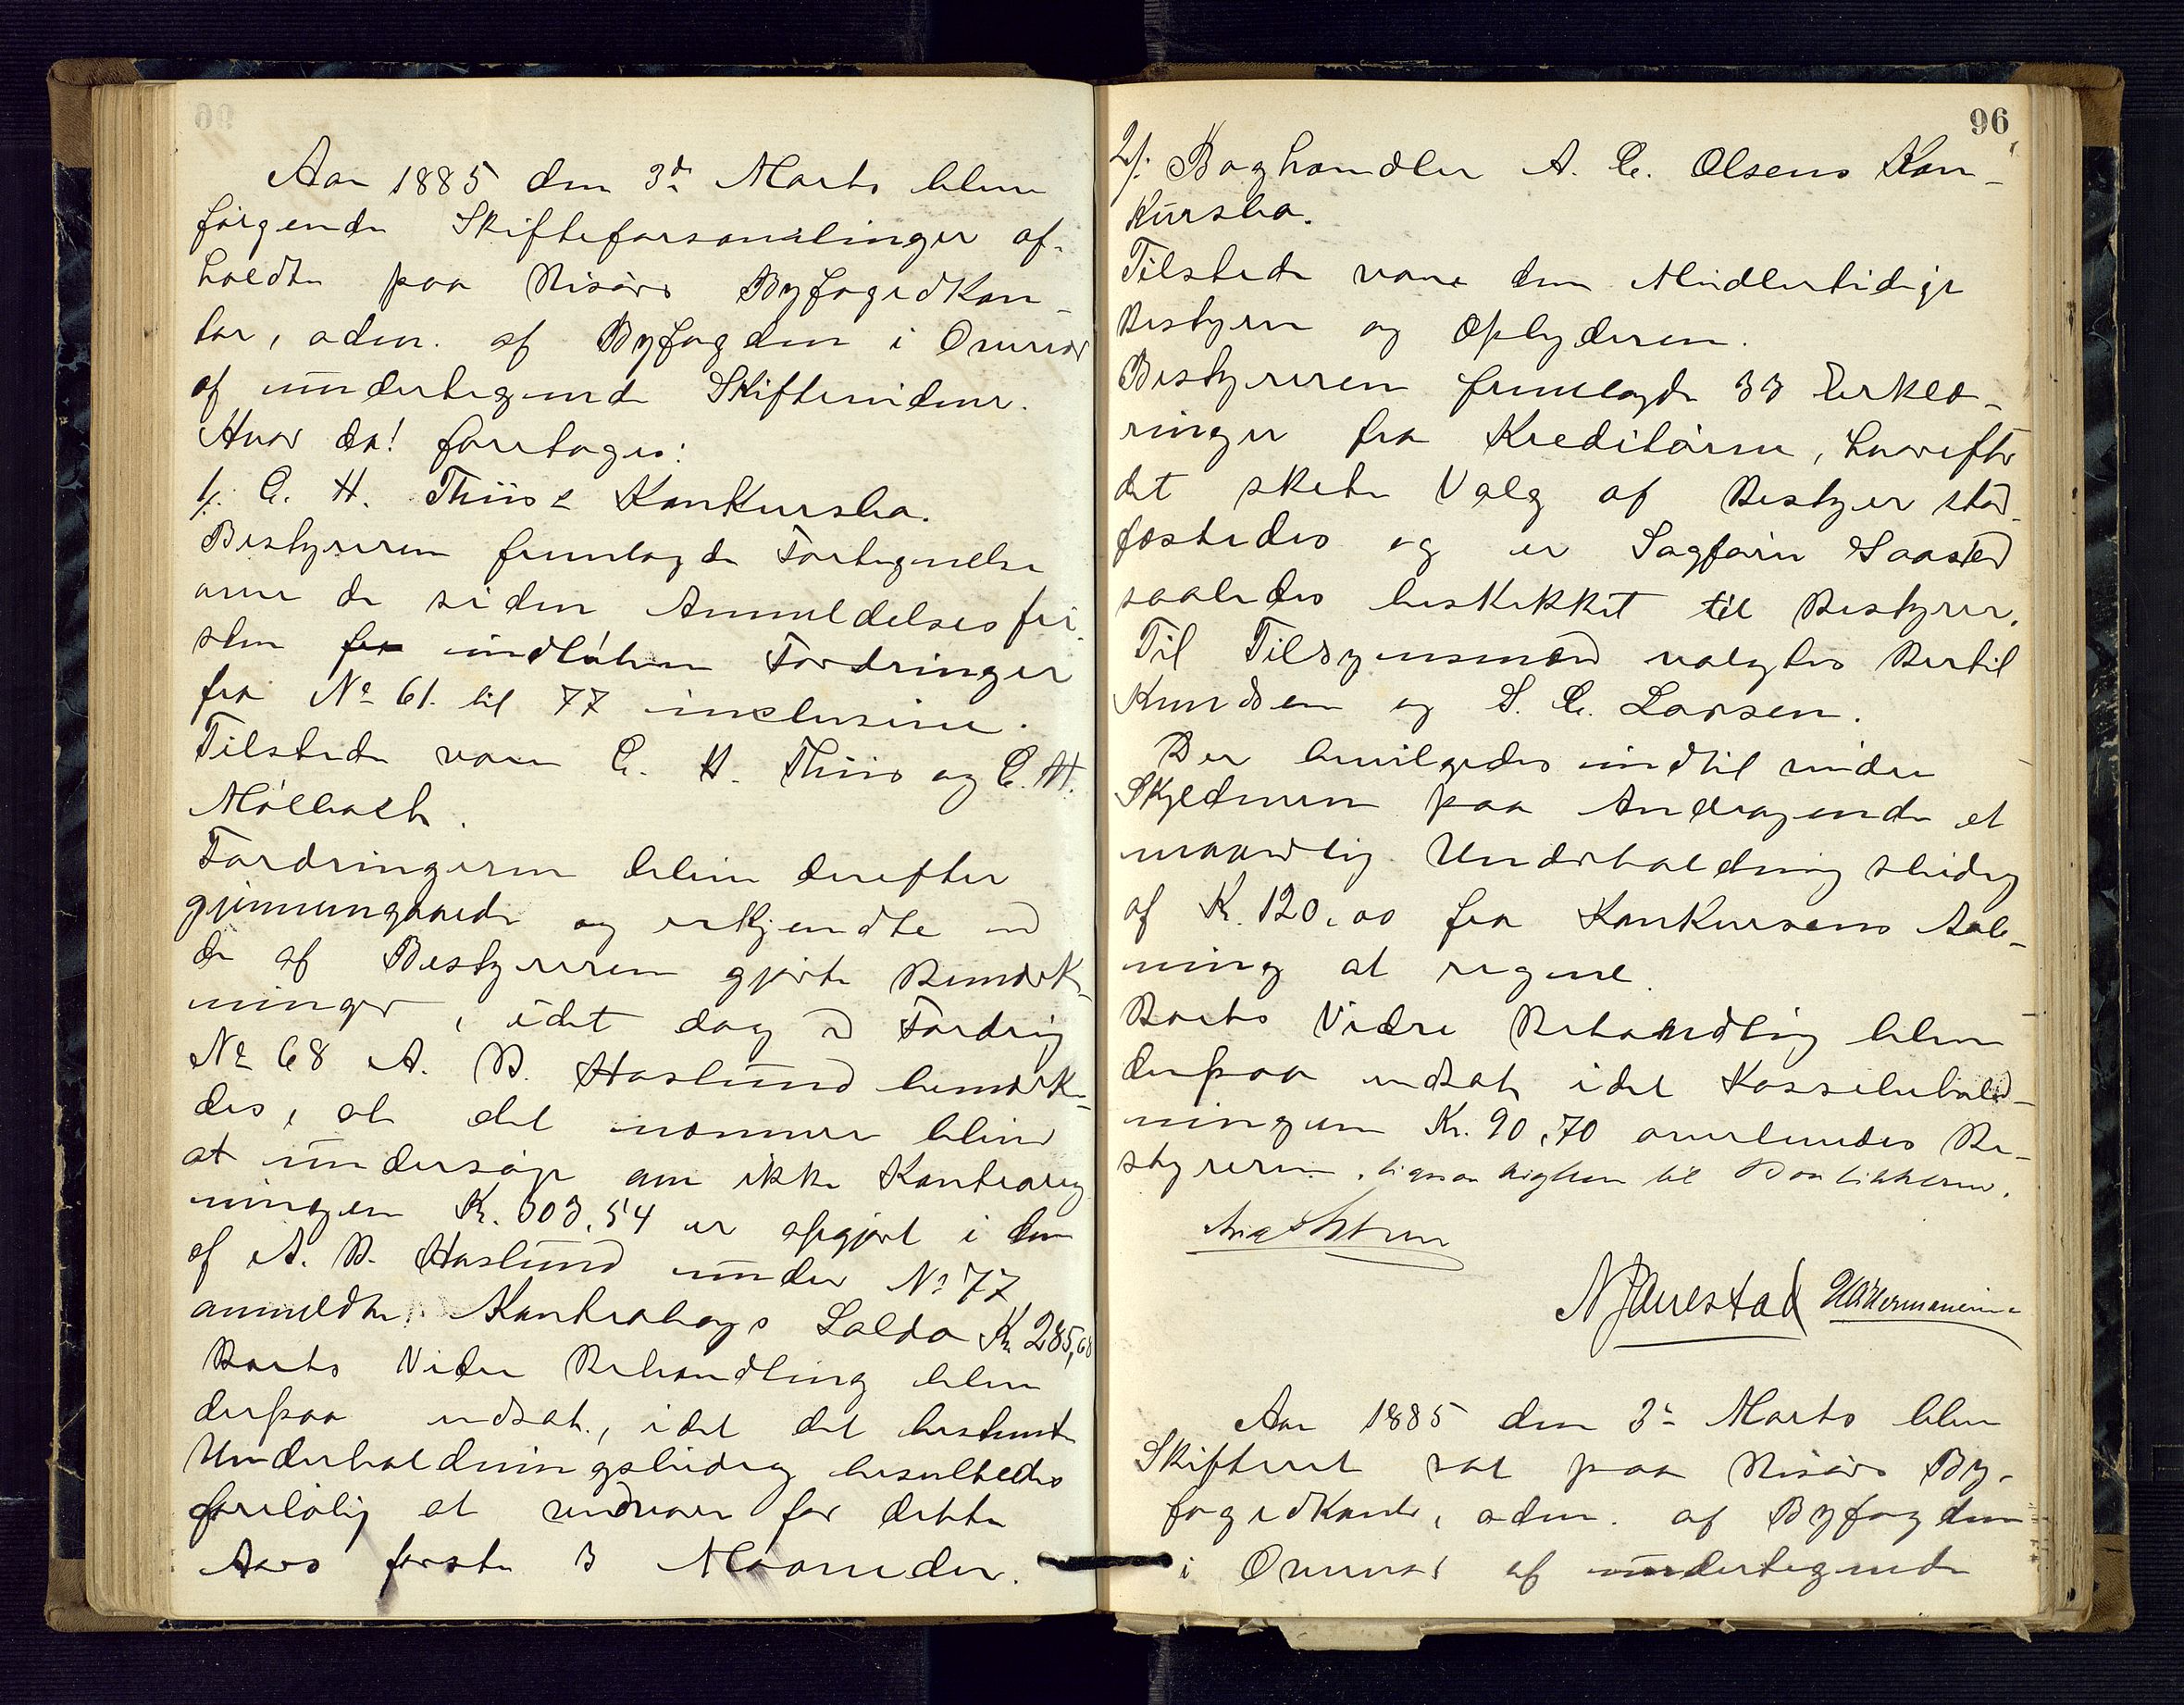 Aar 1885 den 3de Marts blev
følgende Skifteforsamlinger af-
holdte paa Risørs Byfogedkon-
tor, adm. af Byfogden i Overvær
af undertegnede Skiftevidner.
Hvor da! foretoges:
1/. C. H. Thiis's Konkursbo.
Bestyreren fremlagde Fortegnelse
over de siden Anmeldelsesfri-
sten fra indløbne Fordringer
fra No 61. til 77 inclusive.
Tilstede vare C. H. Thiis og C. H.
Mølbach.
Fordringerne bleve derefter
gjennemgaaede og erkjendte med
de af Bestyreren gjorte Bemærk-
ninger, idet dog ved Fordring
No 68 A. B. Haslund bemærke-
des, at det nærmere bliver
at undersøge om ikke Kontrareg-
ningen Kr. 303,54 er opgjort i den
af A. B. Haslund under No 77
anmeldte Kontrabogs Saldo Kr. 285,68
Boets Videre Behandling blev
derpaa udsat, idet det bestemte
Underholdningsbidrag besluttedes
foreløbig at vedvare for dette
Aars første 3 Maaneder.
96
2/. Boghandler A. C. Olsens Kon-
kursbo.
Tilstede vare den Midlertidige
Bestyrer og Opbyderen.
Bestyreren fremlagde 33 Erklæ-
ringer fra Kreditorerne, hvorefter
det skete Valg af Bestyrer stad-
fæstedes og er Sagfører Saasted
saaledes beskikket til Bestyrer.
Til Tilsynsmænd valgtes Bertil
Knudsen og S. C. Larsen.
Der bevilgedes indtil videre
Skyldneren paa Andragende et
maanedlig Underholdning sbidrag
af Kr. 120,00 fra Konkursens Aab-
ning at regne.
Boets Videre Behandling blev
derpaa udsat, idet Kassebehold-
ningen Kr. 90,70 overleveredes Be-
styreren, ligesaa Nøglerne til Boutikkerne.
N Jaurestad
Aar 1885 den 3die Marts blev
Skifteret sat paa Risørs By-
fogedkontor, adm. af Byfogden
i Overvær af undertegnede